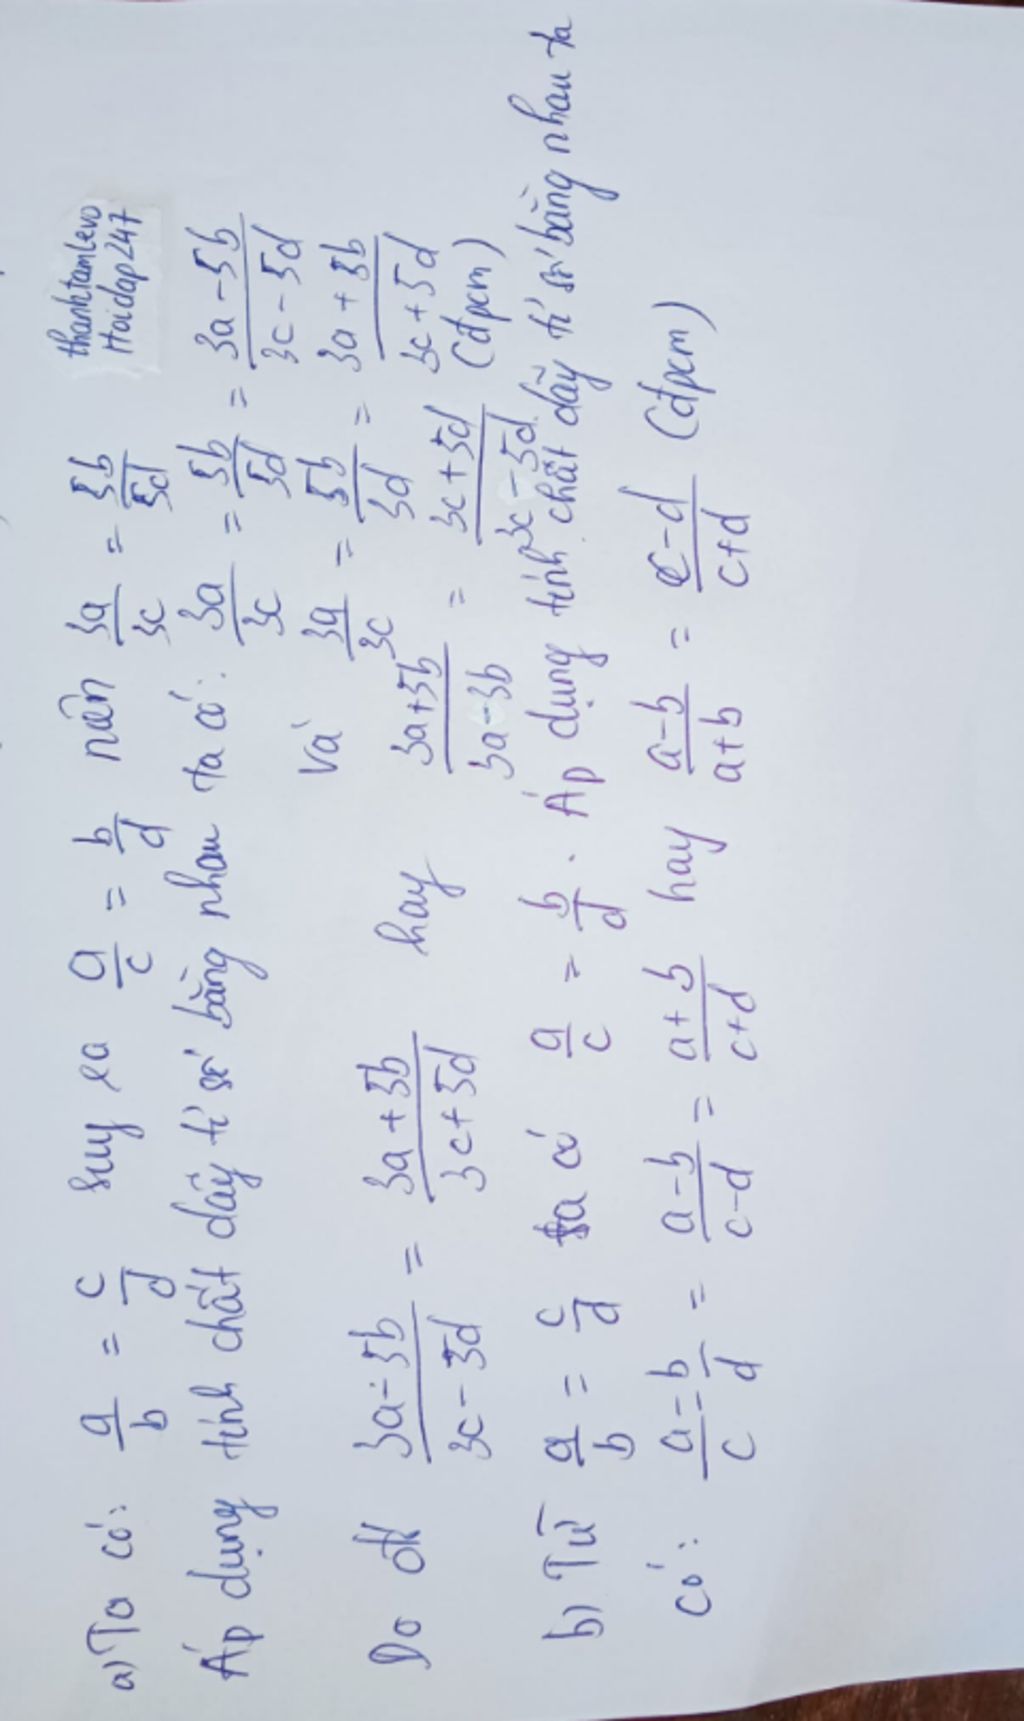 thanhtamlevo
Hoidap247
a) Ta có: a/b = c/d suy ra a/c = b/d nên 3a/3c = 5b/5d
Áp dụng tính chất dãy tỉ số bằng nhau ta có: 3a/3c = 5b/5d = (3a-5b)/(3c-5d)
Và 3a/3c = 5b/5d = (3a+5b)/(3c+5d)
Do đó (3a-5b)/(3c-5d) = (3a+5b)/(3c+5d) hay (3a+5b)/(3a-5b) = (3c+5d)/(3c-5d) (đpcm)
b) Từ a/b = c/d ta có a/c = b/d. Áp dụng tính chất dãy tỉ số bằng nhau ta
có: a/c = b/d = (a-b)/(c-d) = (a+b)/(c+d) hay (a-b)/(a+b) = (c-d)/(c+d) (đpcm)